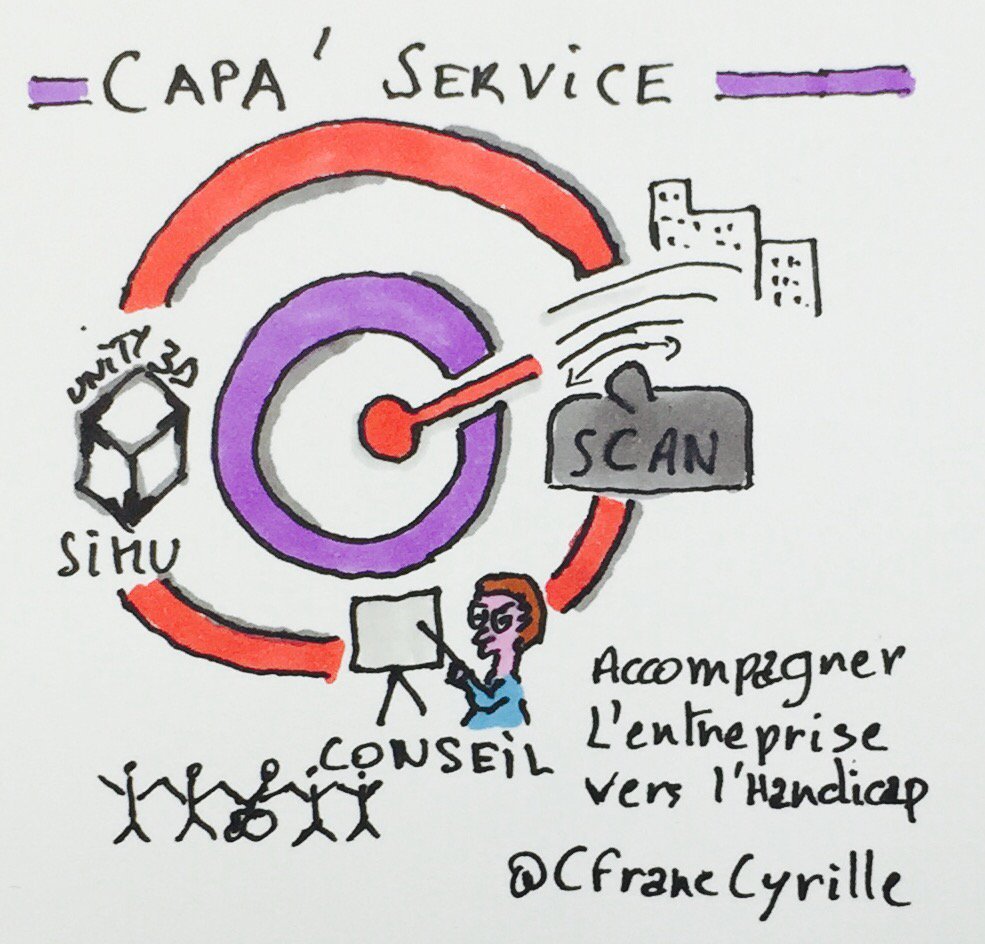 CAPA' SERVICE
UNITY 3D
SIMU
SCAN
CONSEIL
Accompagner
L'entreprise
vers l'Handicap
@CfrancCyrille